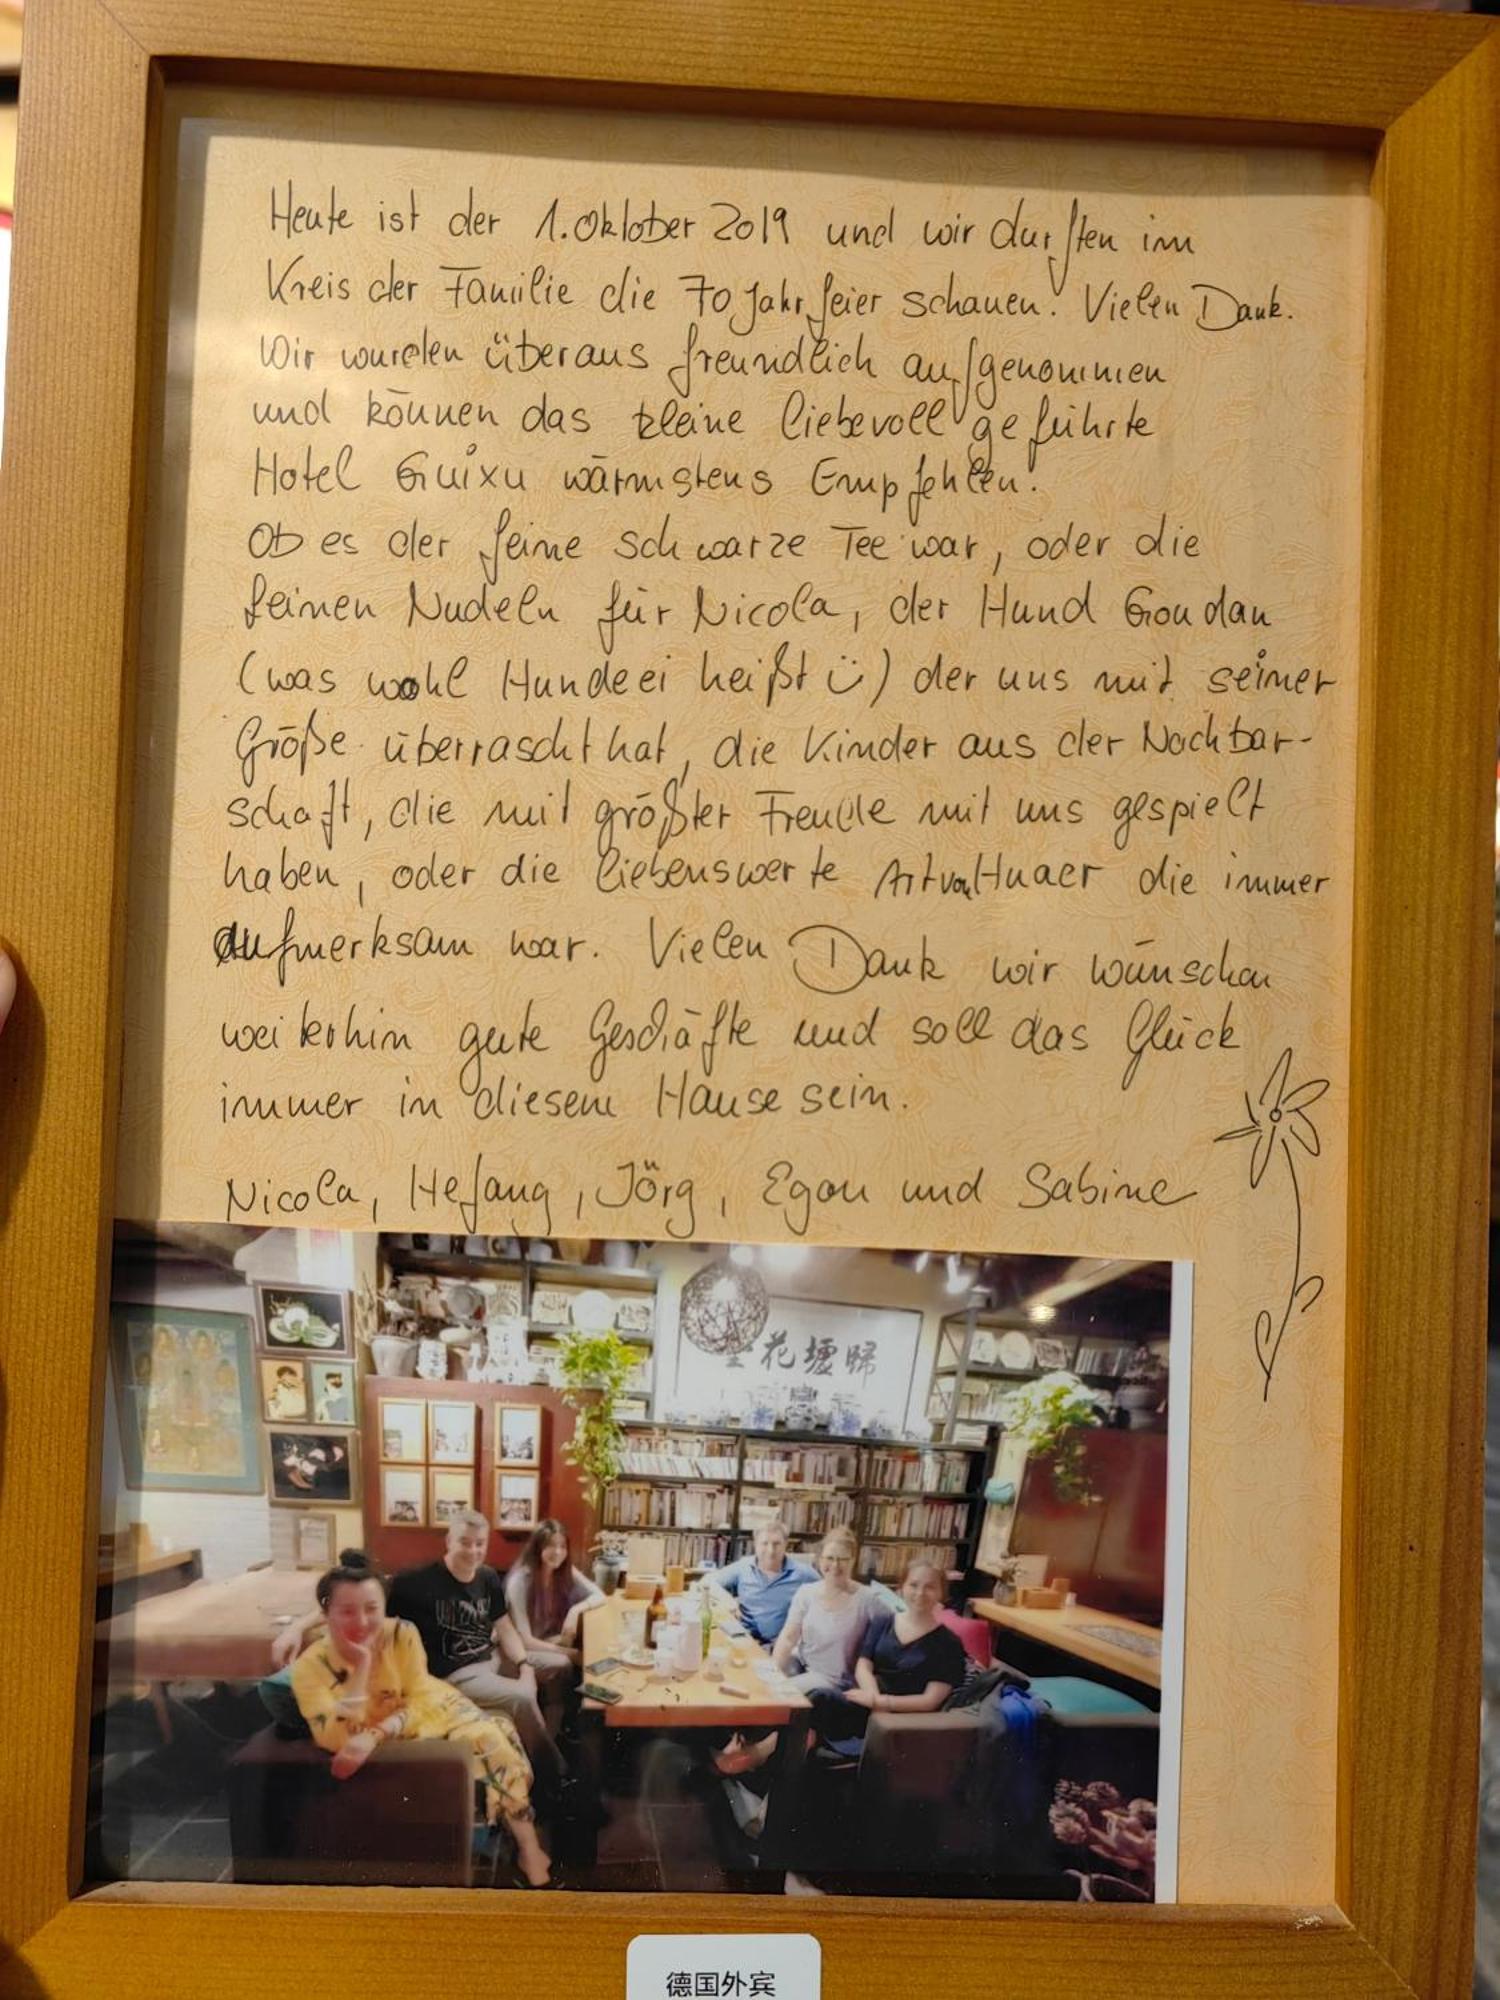 Heute ist der 1. Oktober 2019 und wir durften im
Kreis der Familie die 70 Jahr feier schauen. Vielen Dank.
Wir wurden überaus freundlich aufgenommen
und können das kleine liebevoll geführte
Hotel Guixu wärmstens Empfehlen.
Ob es der feine schwarze Tee war, oder die
feinen Nudeln für Nicola, der Hund Goudan
(was wohl Hundeei heißt ü) der uns mit seiner
Größe überrascht hat, die Kinder aus der Nachbar-
schaft, die mit größter Freude mit uns gespielt
haben, oder die liebenswerte Art von Huaer die immer
aufmerksam war. Vielen Dank wir wünschen
weiterhin gute Geschäfte und soll das Glück
immer in diesem Hause sein.
Nicola, Hefang, Jörg, Egon und Sabine
花墟歸
德国外宾